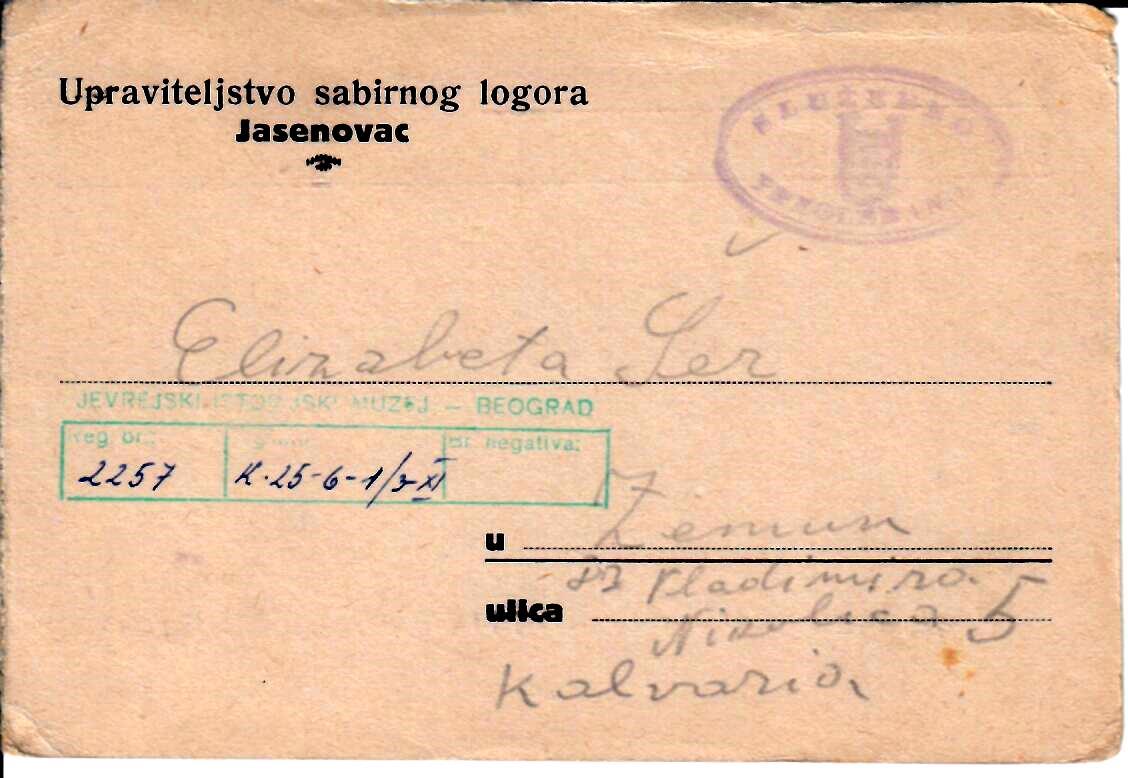 Upraviteljstvo sabirnog logora
Jasenovac
SLUŽBENO
Elizabeta Ser
JEVREJSKI ISTORIJSKI MUZEJ - BEOGRAD
Reg. br.: Br. negativa:
2257 K.25-6-1/3-XI
u Zemun
Vladimira
ulica 5
Kalvaria